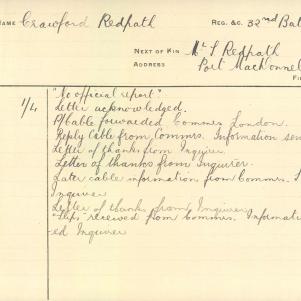 NAME Crawford Redpath REG. &C. 32nd Bat
NEXT OF KIN Mr S Redpath
ADDRESS Port MacDonnel
FI
1/4 "No official report"
Letter acknowledged.
P/Cable forwarded Commrs London.
Reply Cable from Commrs. Information sen
Letter of thanks from Inquirer
Letter of thanks from Inquirer.
Later cable information from Commrs.
Inquirer
Letter of thanks from Inquirer
"Slips" received from Commrs. Informati
ed Inquirer